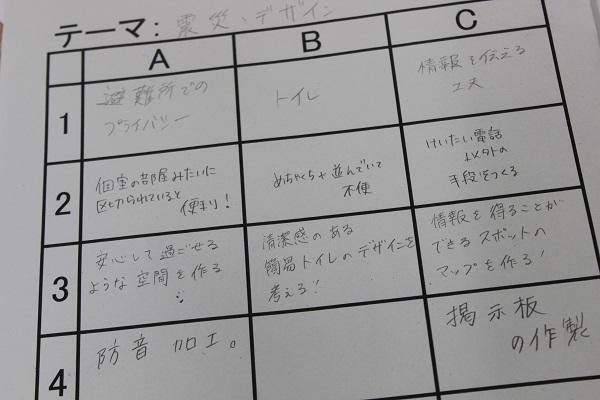 テーマ: 震災、デザイン
A B C
1
避難所での
プライバシー
トイレ
情報を伝える
工夫
2
個室の部屋みたいに
区切られていると
便利！
めちゃくちゃ並んでいて
不便
けいたい電話
以外の
手段をつくる
3
安心して過ごせる
ような空間を作る
清潔感のある
簡易トイレのデザインを
考える！
情報を得ることが
できるスポットの
マップを作る！
4
防音加工。
掲示板
の作製